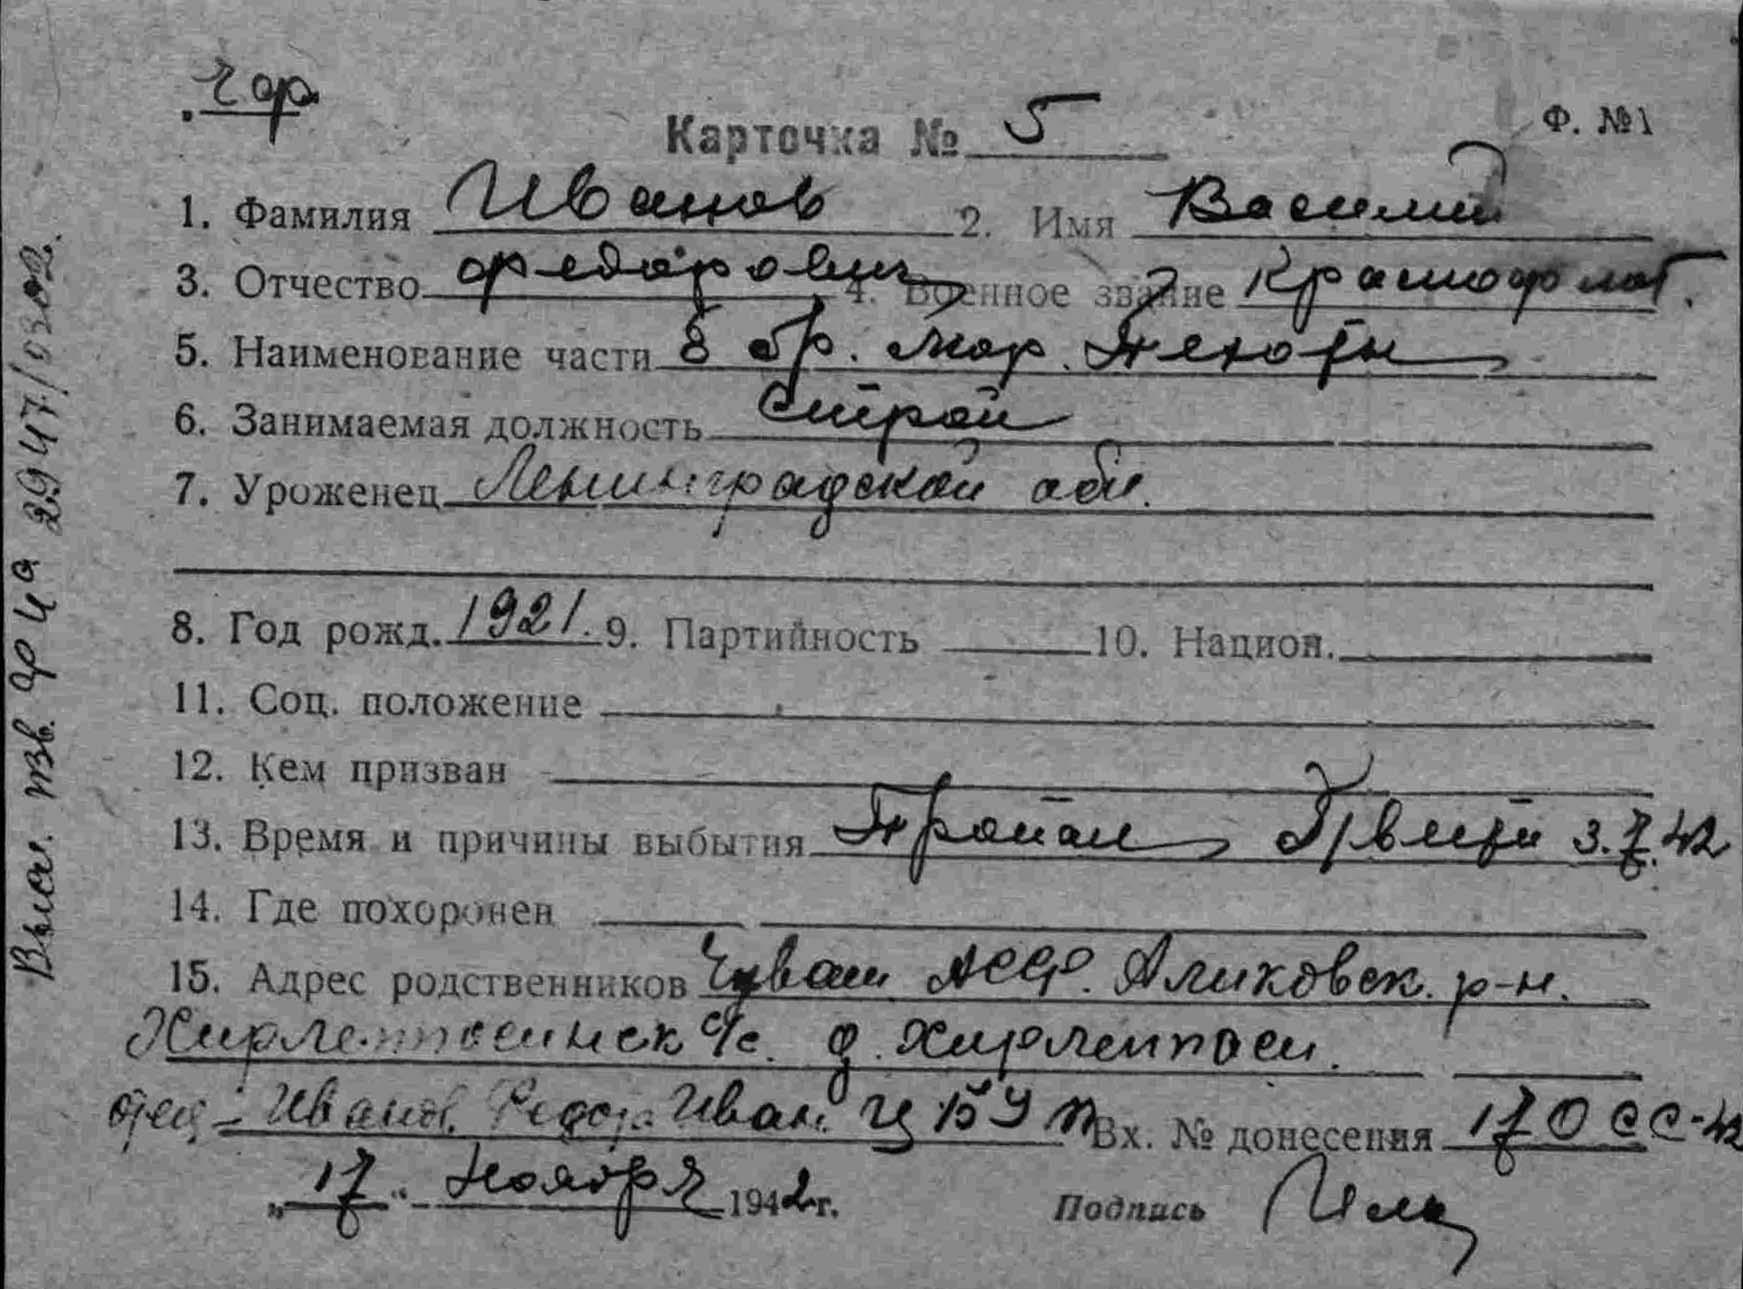 ЧФ
Карточка № 5 Ф. №1
1. Фамилия Иванов 2. Имя Василий
3. Отчество Федорович 4. Военное звание Краснофлот.
5. Наименование части 8 бр. мор. пехоты
6. Занимаемая должность Строй
7. Уроженец Ленинградской обл.
8. Год рожд. 1921. 9. Партийность 10. Национ.
11. Соц. положение
12. Кем призван
13. Время и причины выбытия Пропал 3.7.42
14. Где похоронен
15. Адрес родственников Чуваш АССР. Аликовск. р-н.
Хирлепосинск с/с. д. Хирлеппоси.
отец - Иванов Федор Иван. Вх. № донесения 17
„17“ Ноября 1942 г. Подпись
Высл. изв. 2947/0202.